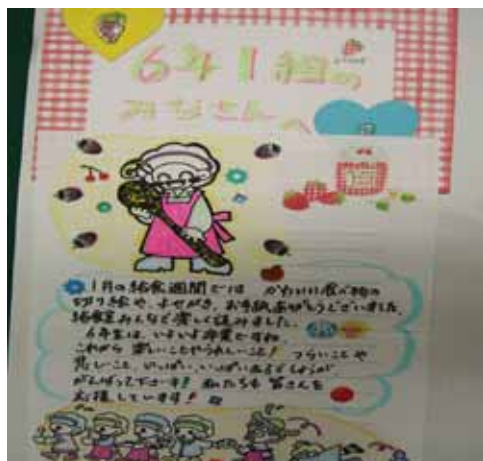 6年1組の
みなさんへ
1月の給食週間では かわいい食べ物の
切り絵や、よせがき、お手紙ありがとうございました。
給食室みんなで楽しく読みました。
6年生は、いよいよ卒業ですね。
これから 楽しいことやうれしいこと! つらいことや
悲しいこと、いっぱい、いっぱいあるでしょうが
がんばって下さいネ! 私たちも皆さんを
応援しています!